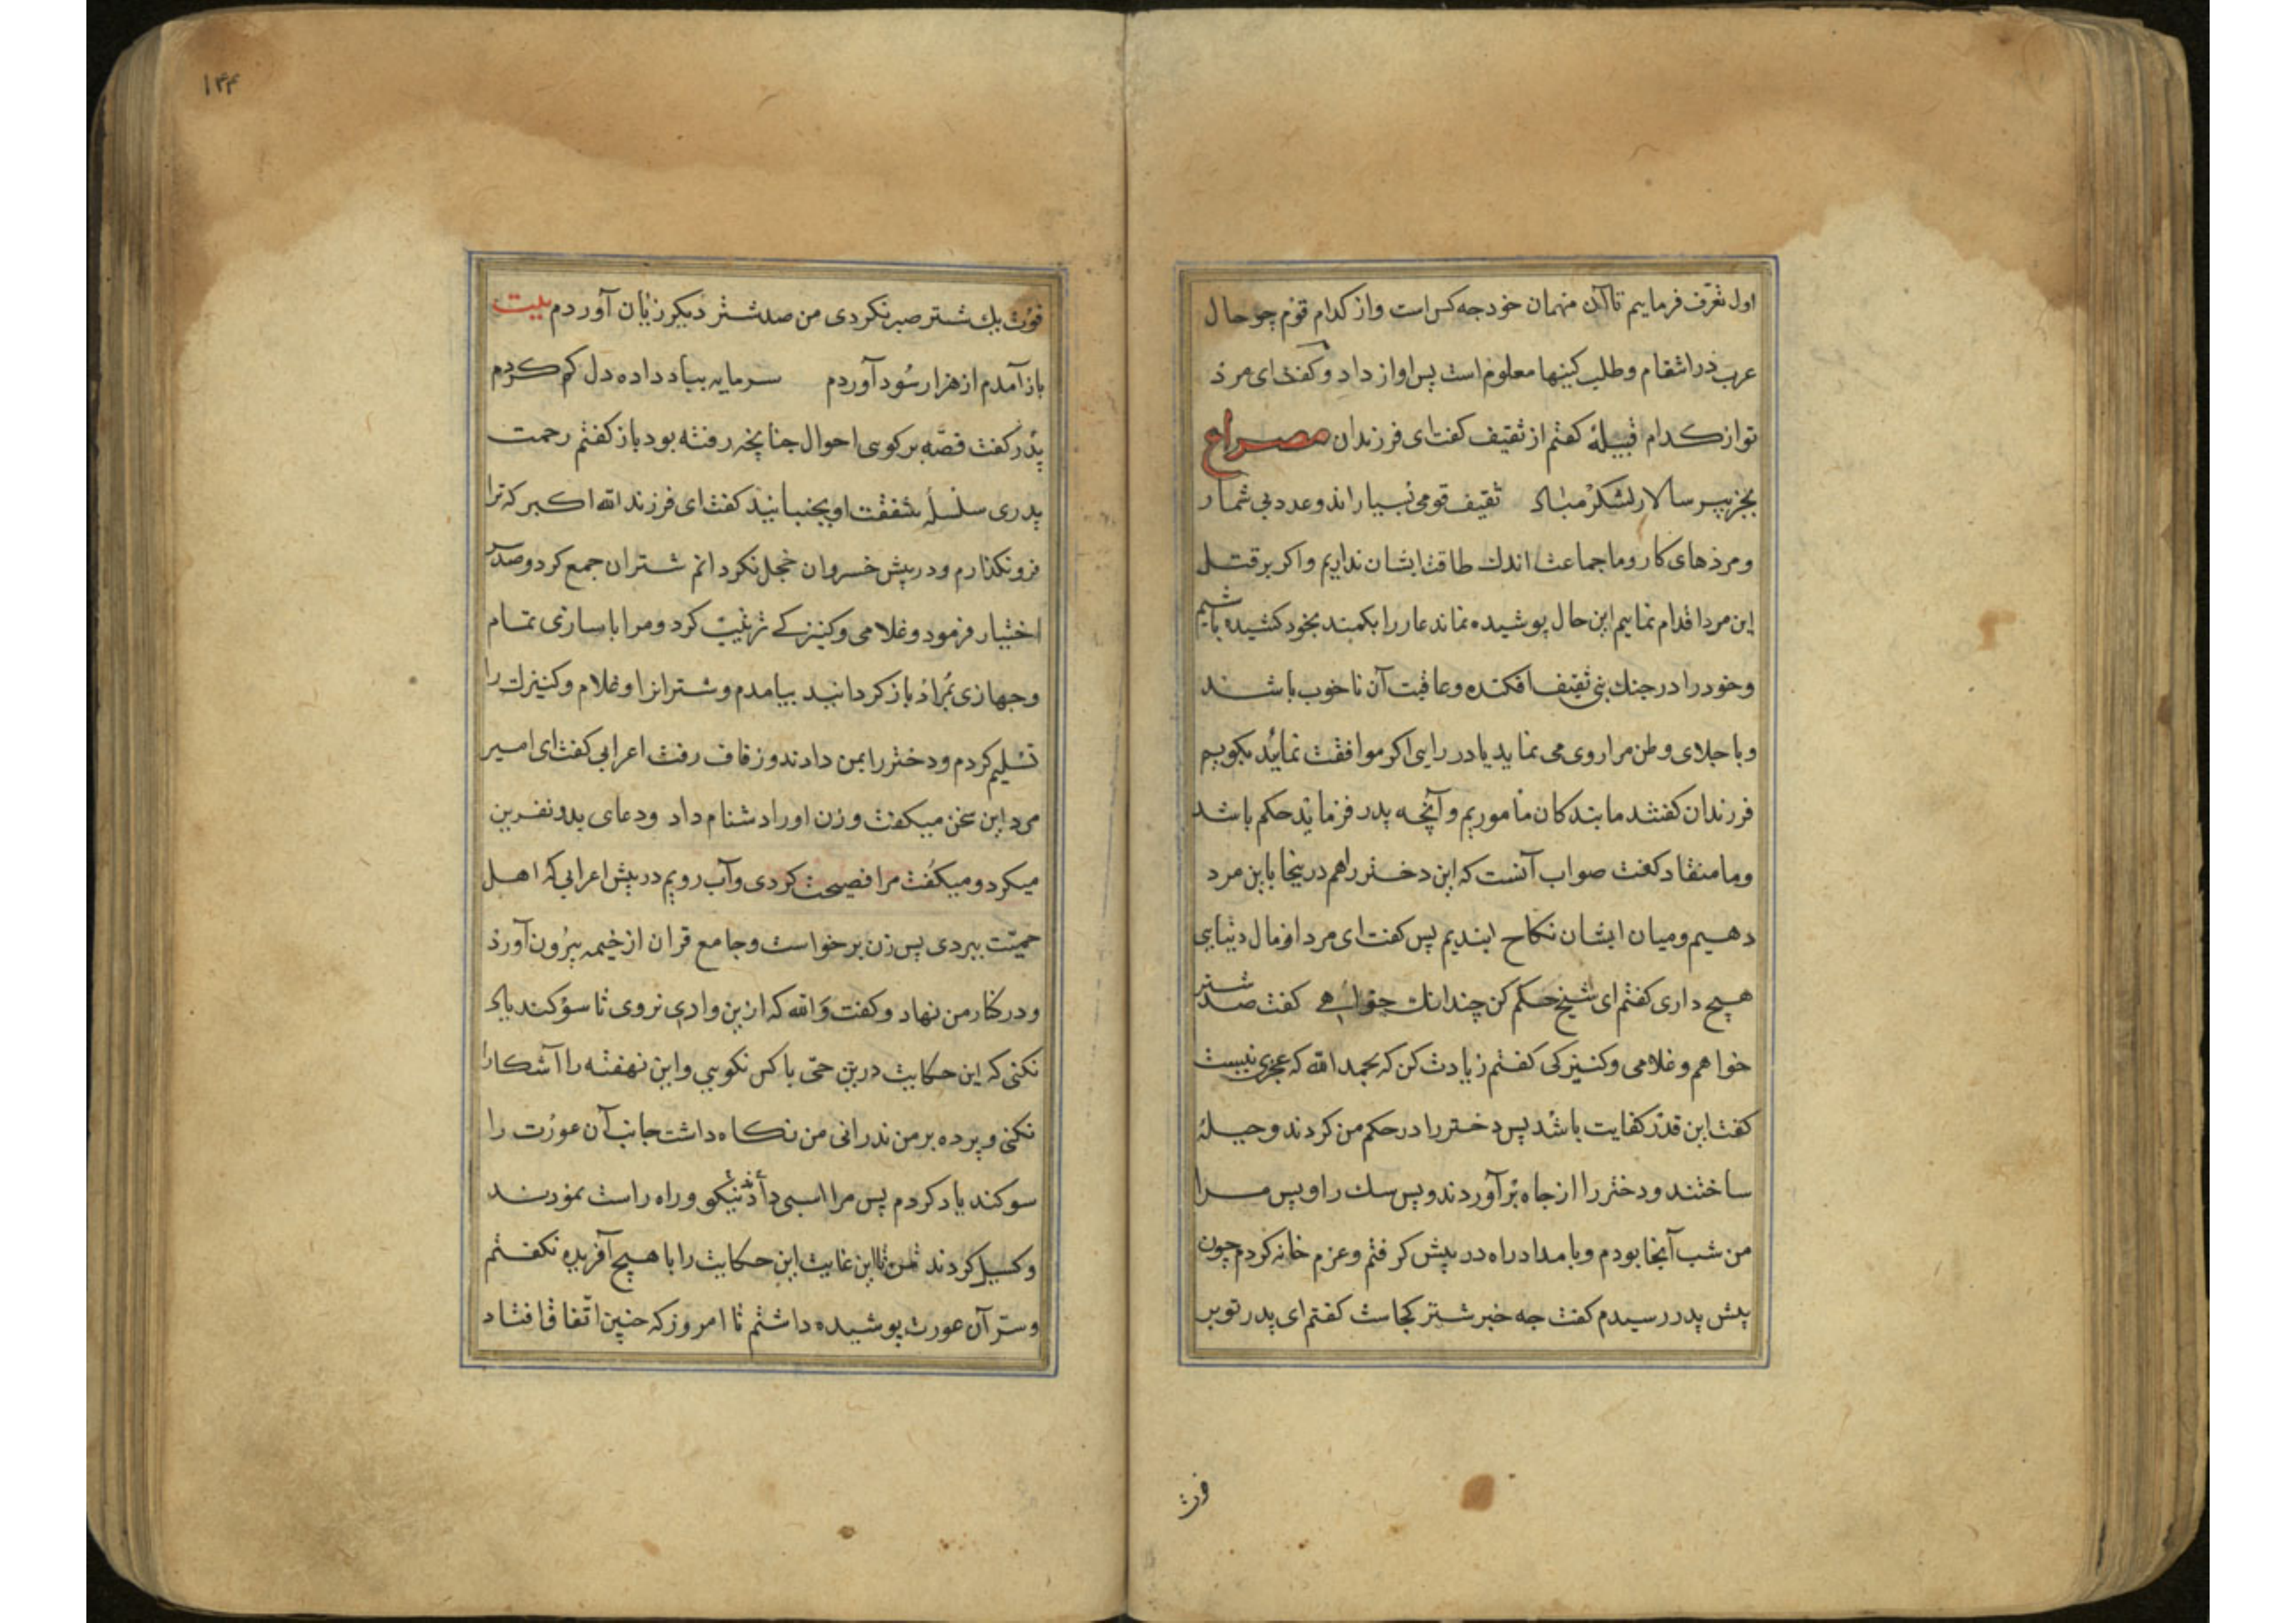 اول تعرف فرماییم تا آن مهمان خود جه کس است واز کدام قوم چو حال
عرب در انتقام و طلب کینها معلوم است پس اواز داد و کفت ای مرد
تو از کدام قبیلهٔ کفتم از ثقیف کفت ای فرزندان مصراع
بجز پیر سالار لشکر مباد ثقیف قومی بسیاراند و عدد بی شمار
و مردهای کار و ما جماعت اندک طاقت ایشان نداریم و اکر بر قتل
این مرد اقدام نماییم این حال پوشیده نماند عار را بکمند بخود کشیده باشیم
و خود را در جنک بنی ثقیف افکنده و عاقبت آن ناخوب باشند
و با جلای وطن مرا روی می نماید یا در رایی اکر موافقت نمایند بکویم
فرزندان کفتند ما بندکان ماموریم و آنچه پدر فرماید حکم باشد
و ما منقاد کفت صواب آنست که این دختر را هم درینجا باین مرد
دهیم و میان ایشان نکاح ابندیم پس کفت ای مرد از مال دنیایی
هیچ داری کفتم ای شیخ حکم کن چندانک خواهے کفت صد شتر
خواهم و غلامی و کنیزکی کفتم زیادت کن که بحمد الله که عجزی نیست
کفت این قدر کفایت باشد پس دختر را در حکم من کردند و حیلهٔ
ساختند و دختر را از جاه بر آوردند و پس سک را و پس مرا
من شب آنجا بودم و بامداد راه در پیش کرفتم و عزم خانه کردم چون
پیش پدر رسیدم کفت جه خبر شتر کجاست کفتم ای پدر تو بر
فوت
۱۴۴
فوت یک شتر صبر نکردی من صد شتر دیکر زیان آوردم بیت
باز آمدم از هزار سود آوردم سرمایه بباد داده دل کم کردم
پدر کفت قصّه بر کوی احوال جنانچه رفته بود باز کفتم رحمت
پدری سلسلهٔ شفقت او بجنبانید کفت ای فرزند الله اکبر که ترا
فرو نکذارم و در پیش خسروان خجل نکردانم شتران جمع کرد و صد سر
اختیار فرمود و غلامی و کنیزکے ترتیب کرد و مرا با سازی تمام
و جهازی بمراد باز کردانید بیامدم و شترانرا و غلام و کنیزک را
تسلیم کردم و دختر را بمن دادند و زفاف رفت اعرابی کفت ای امیر
مرد این سخن میکفت و زن او را دشنام داد و دعای بد و نفرین
میکرد و میکفت مرا فصیحت کردی و آب رویم در پیش اعرابی که اهل
حمیّت ببردی پس زن برخواست و جامع قران از خیمه بیرون آورد
و در کنار من نهاد و کفت والله که ازین وادی نروی تا سوکند یاد
نکنی که این حکایت درین حیّ با کس نکویی و این نهفته را آشکارا
نکنی و پرده بر من ندرانی من نکاه داشت جانب آن عورت را
سوکند یاد کردم پس مرا اسبی دادند نیکو و راه راست نمودند
و کسیل کردند من تا این غایت این حکایت را با هیچ آفریده نکفتم
و سرّ آن عورت پوشیده داشتم تا امروز که جنین اتّفاق افتاد